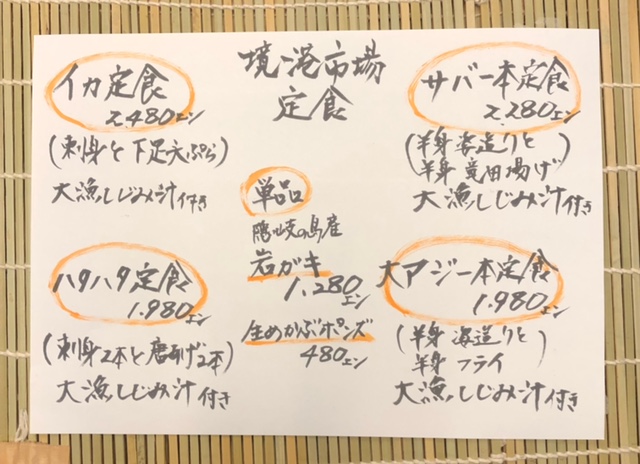 境港市場
定食
イカ定食
2,480エン
(刺身と下足天ぷら)
大漁しじみ汁付き
サバ一本定食
2,280エン
(半身姿造りと
半身竜田揚げ)
大漁しじみ汁付き
単品
隠岐の島産
岩ガキ
1,280エン
生めかぶポンズ
480エン
ハタハタ定食
1,980エン
(刺身2本と唐あげ2本)
大漁しじみ汁付き
大アジ一本定食
1,980エン
(半身姿造りと
半身フライ)
大漁しじみ汁付き